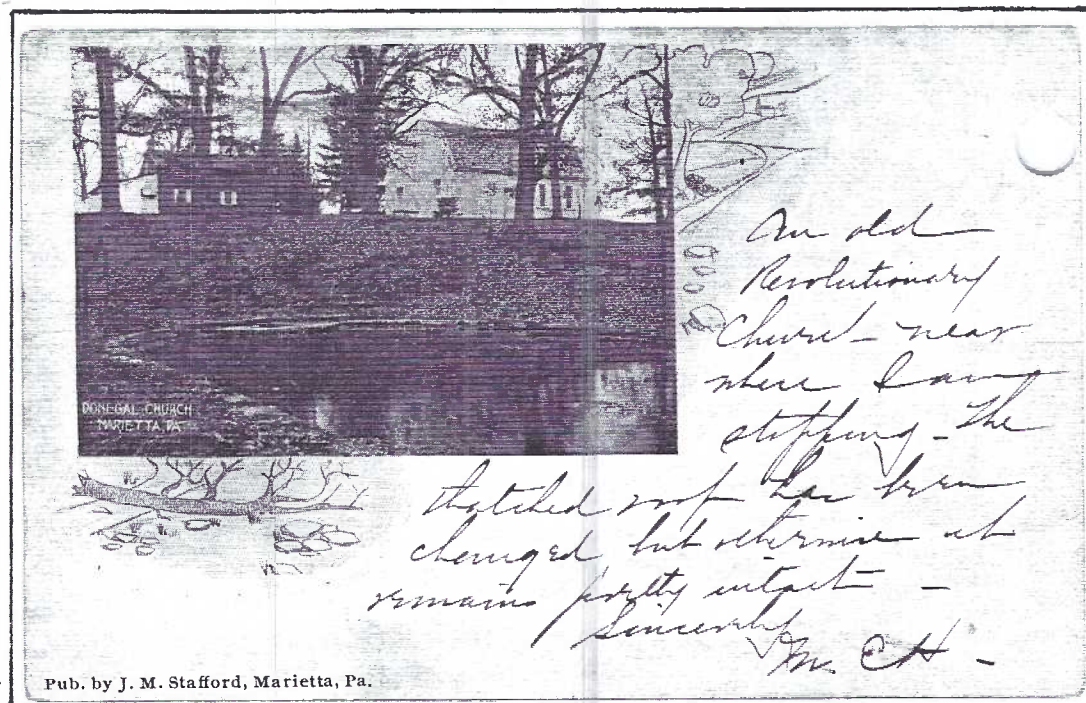 DONEGAL CHURCH
MARIETTA, PA.
An old
Revolutionary
Church - near
where I am
stopping - The
thatched roof has been
changed but otherwise it
remains pretty intact -
Sincerely
M. C. H -
Pub. by J. M. Stafford, Marietta, Pa.